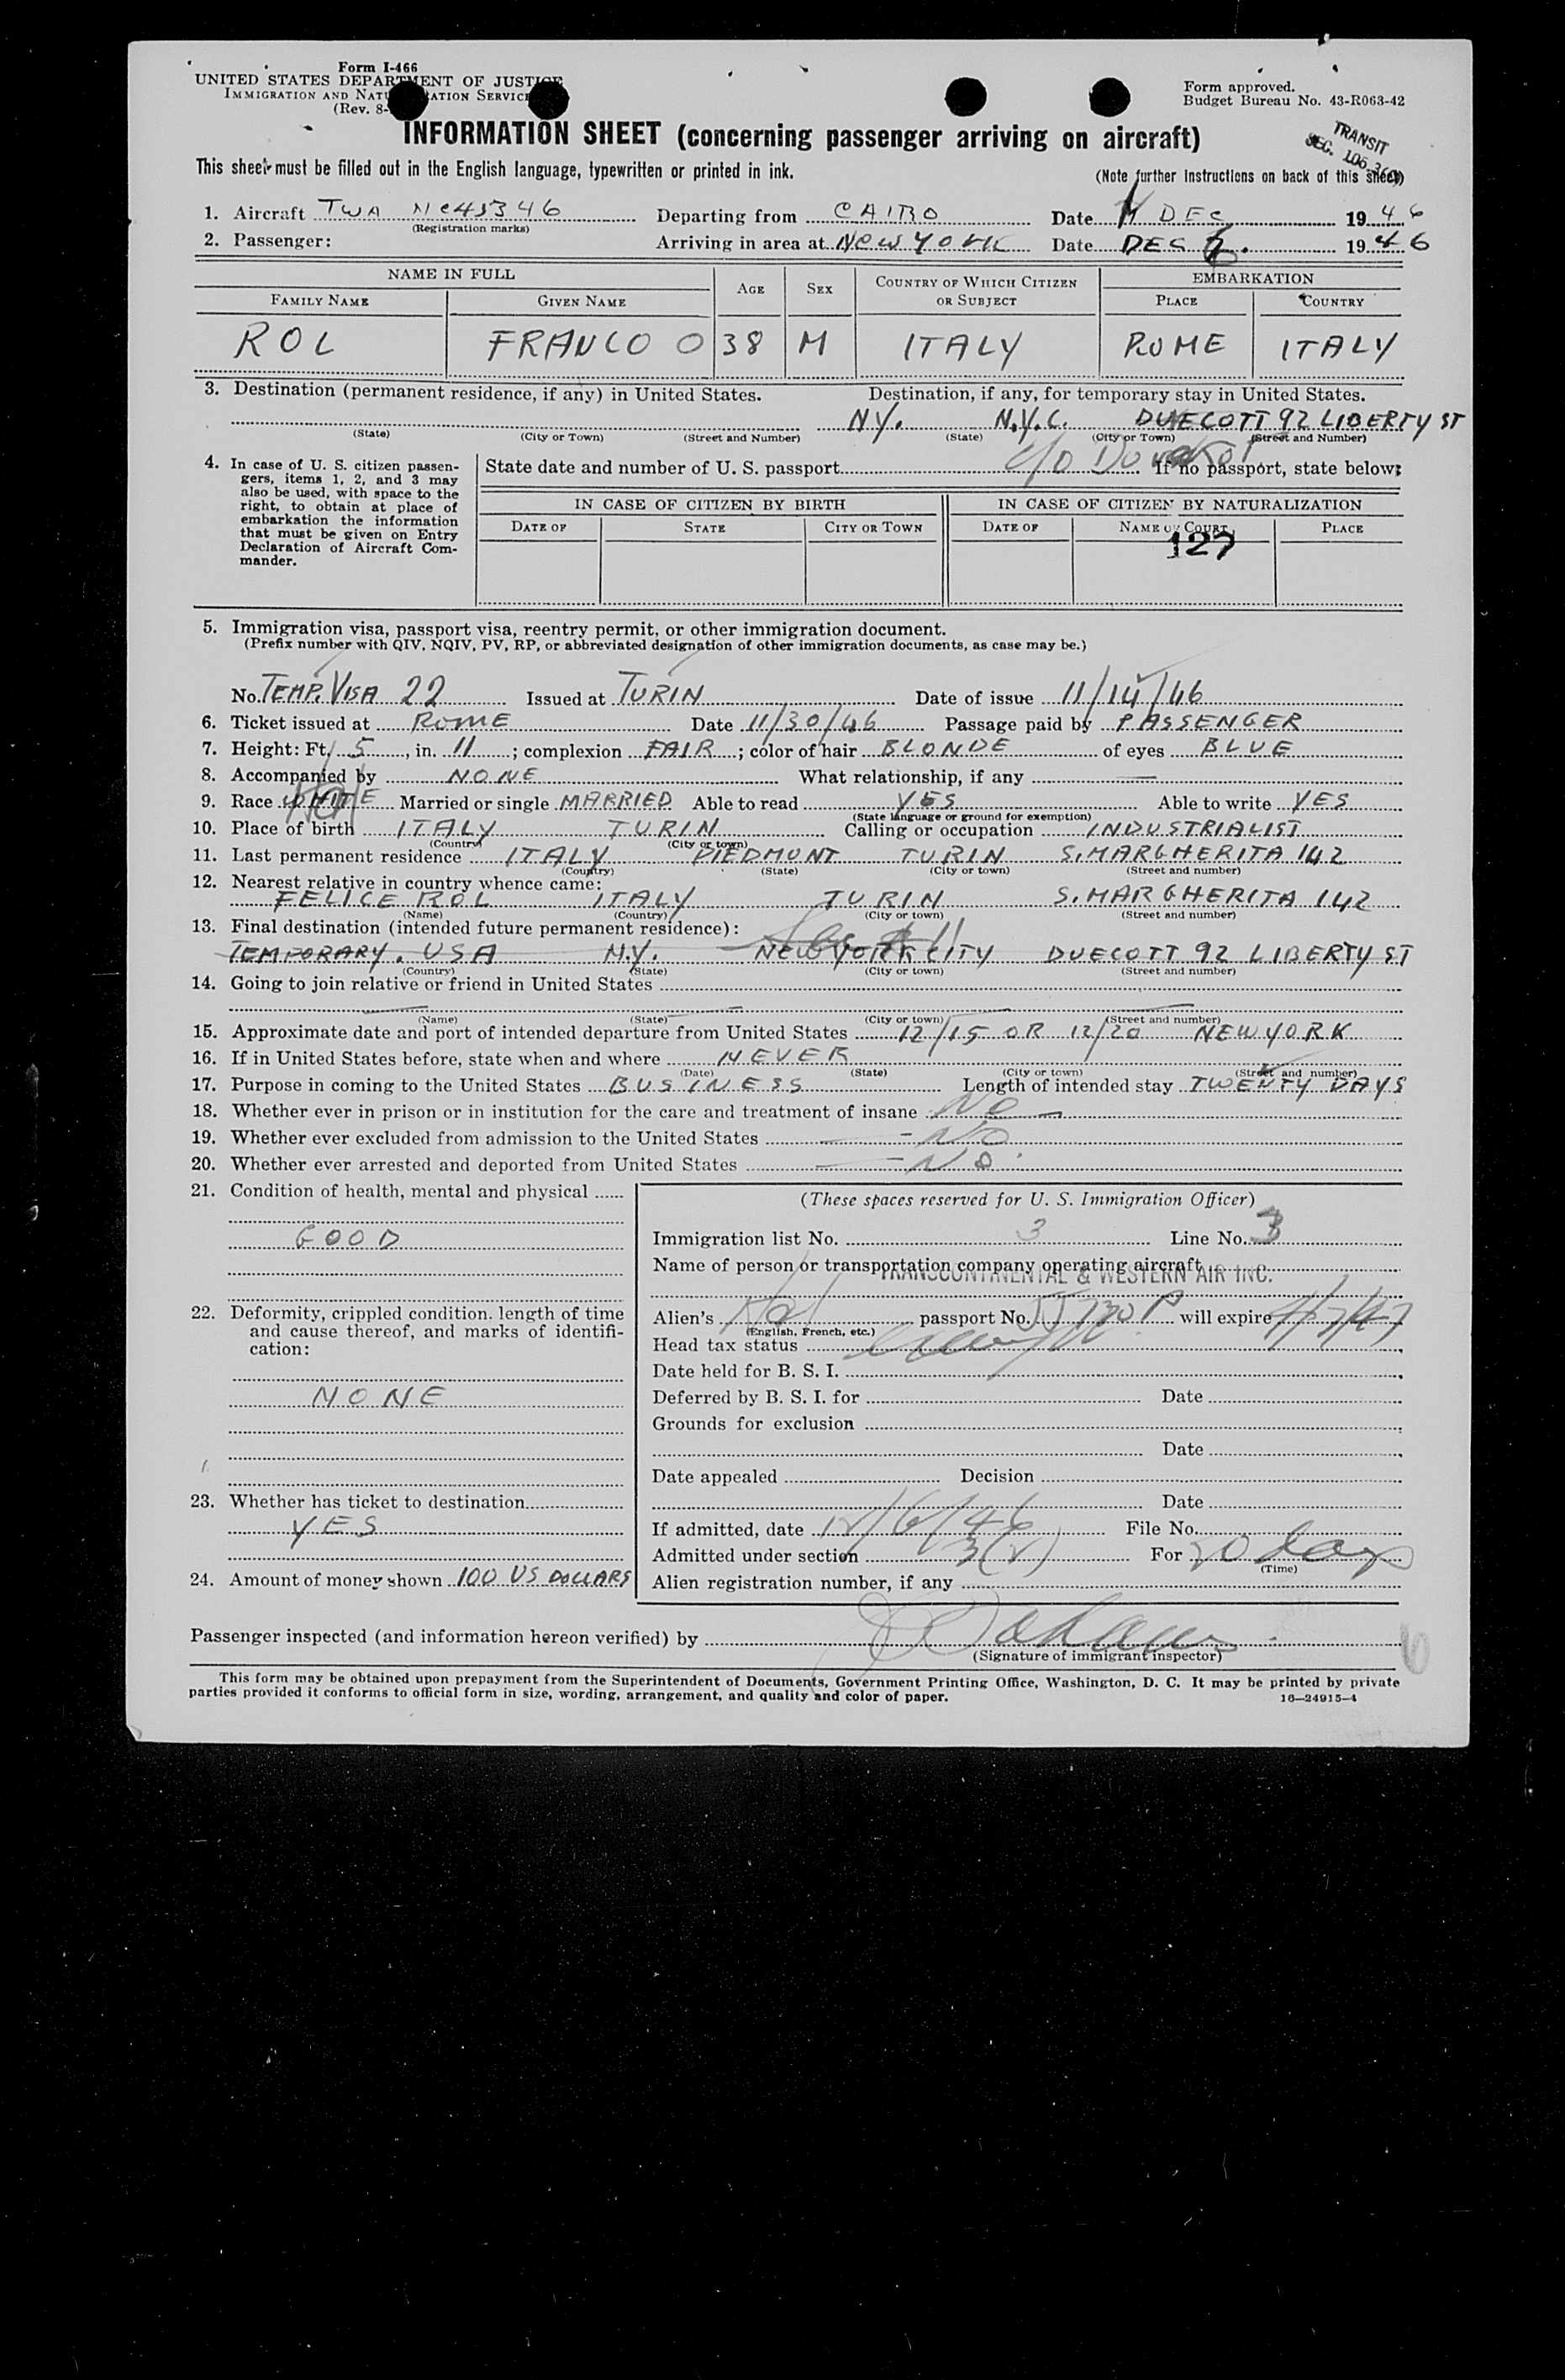 Form I-466
UNITED STATES DEPARTMENT OF JUSTICE
IMMIGRATION AND NATURALIZATION SERVICE
(Rev. 8-
Form approved.
Budget Bureau No. 43-R063-42
INFORMATION SHEET (concerning passenger arriving on aircraft)
TRANSIT
SEC.
This sheet must be filled out in the English language, typewritten or printed in ink.
(Note further instructions on back of this sheet)
1. Aircraft TWA NC45346 Departing from CAIRO Date DEC 1946
(Registration marks)
2. Passenger: Arriving in area at NEW YORK Date DEC 6. 1946
NAME IN FULL AGE SEX COUNTRY OF WHICH CITIZEN OR SUBJECT EMBARKATION
FAMILY NAME GIVEN NAME PLACE COUNTRY
ROL FRANCO O 38 M ITALY ROME ITALY
3. Destination (permanent residence, if any) in United States. Destination, if any, for temporary stay in United States.
NY. N.Y.C. DUECOTT 92 LIBERTY ST
(State) (City or Town) (Street and Number) (State) (City or Town) (Street and Number)
4. In case of U. S. citizen passengers, items 1, 2, and 3 may also be used, with space to the right, to obtain at place of embarkation the information that must be given on Entry Declaration of Aircraft Commander.
State date and number of U. S. passport c/o If no passport, state below:
IN CASE OF CITIZEN BY BIRTH IN CASE OF CITIZEN BY NATURALIZATION
DATE OF STATE CITY OR TOWN DATE OF NAME OF COURT PLACE
127
5. Immigration visa, passport visa, reentry permit, or other immigration document.
(Prefix number with QIV, NQIV, PV, RP, or abbreviated designation of other immigration documents, as case may be.)
No. TEMP. VISA 22 Issued at TURIN Date of issue 11/14/46
6. Ticket issued at ROME Date 11/30/46 Passage paid by PASSENGER
7. Height: Ft. 5, in. 11; complexion FAIR; color of hair BLONDE of eyes BLUE
8. Accompanied by NONE What relationship, if any —
9. Race WHITE Married or single MARRIED Able to read YES Able to write YES
(State language or ground for exemption)
10. Place of birth ITALY TURIN Calling or occupation INDUSTRIALIST
(Country) (City or town)
11. Last permanent residence ITALY PIEDMONT TURIN S. MARGHERITA 142
(Country) (State) (City or town) (Street and number)
12. Nearest relative in country whence came:
FELICE ROL ITALY TURIN S. MARGHERITA 142
(Name) (Country) (City or town) (Street and number)
13. Final destination (intended future permanent residence):
TEMPORARY. USA N.Y. NEW YORK CITY DUECOTT 92 LIBERTY ST
(Country) (State) (City or town) (Street and number)
14. Going to join relative or friend in United States
(Name) (State) (City or town) (Street and number)
15. Approximate date and port of intended departure from United States 12/15 OR 12/20 NEW YORK
16. If in United States before, state when and where NEVER
(Date) (State) (City or town) (Street and number)
17. Purpose in coming to the United States BUSINESS Length of intended stay TWENTY DAYS
18. Whether ever in prison or in institution for the care and treatment of insane NO —
19. Whether ever excluded from admission to the United States — NO
20. Whether ever arrested and deported from United States — NO
21. Condition of health, mental and physical
GOOD
22. Deformity, crippled condition. length of time and cause thereof, and marks of identification:
NONE
23. Whether has ticket to destination
YES
24. Amount of money shown 100 US DOLLARS
(These spaces reserved for U. S. Immigration Officer)
Immigration list No. 3 Line No. 3
Name of person or transportation company operating aircraft
TRANSCONTINENTAL & WESTERN AIR INC.
Alien's passport No. will expire
(English, French, etc.)
Head tax status
Date held for B. S. I.
Deferred by B. S. I. for Date
Grounds for exclusion
Date
Date appealed Decision
Date
If admitted, date 12/6/46 File No.
Admitted under section 3(2) For 20 days
(Time)
Alien registration number, if any
Passenger inspected (and information hereon verified) by
(Signature of immigrant inspector)
This form may be obtained upon prepayment from the Superintendent of Documents, Government Printing Office, Washington, D. C. It may be printed by private
parties provided it conforms to official form in size, wording, arrangement, and quality and color of paper.
16—24915-4